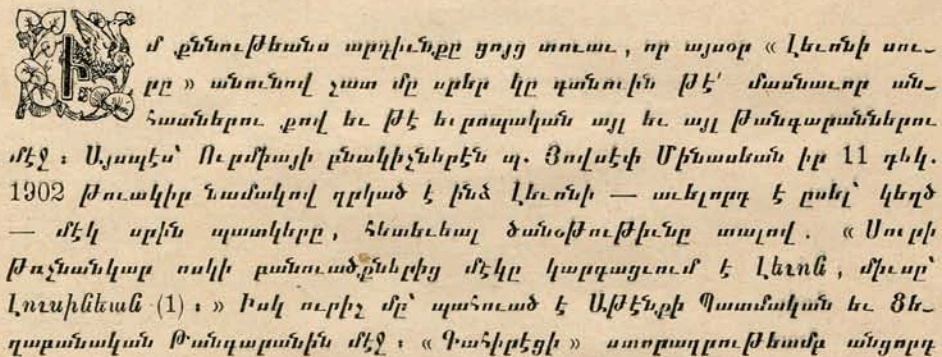 Իմ քննութեանս արդիւնքը ցոյց տուաւ, որ այսօր « Լեւոնի սու-
րը » անունով շատ մը սրեր կը գտնուին թէ՛ մասնաւոր ան-
հատներու քով եւ թէ եւրոպական այլ եւ այլ Թանգարաններու
մէջ : Այսպէս՝ Ուրմիայի բնակիչներէն պ. Յովսէփ Մինասեան իր 11 դեկ.
1902 թուակիր նամակով ղրկած է ինձ Լեւոնի — աւելորդ է ըսել՝ կեղծ
— մէկ սրին պատկերը, հետեւեալ ծանօթութիւնը տալով. « Սուրի
թռչնանկար ոսկի բանուածքներից մէկը կարդացւում է Լեւոն, միւսը՝
Լուսինեան (1) : » Իսկ ուրիշ մը՝ պահուած է Աթէնքի Պատմական եւ Ցե-
ղաբանական Թանգարանին մէջ : « Գահիրէցի » ստորագրութեամբ անցորդ